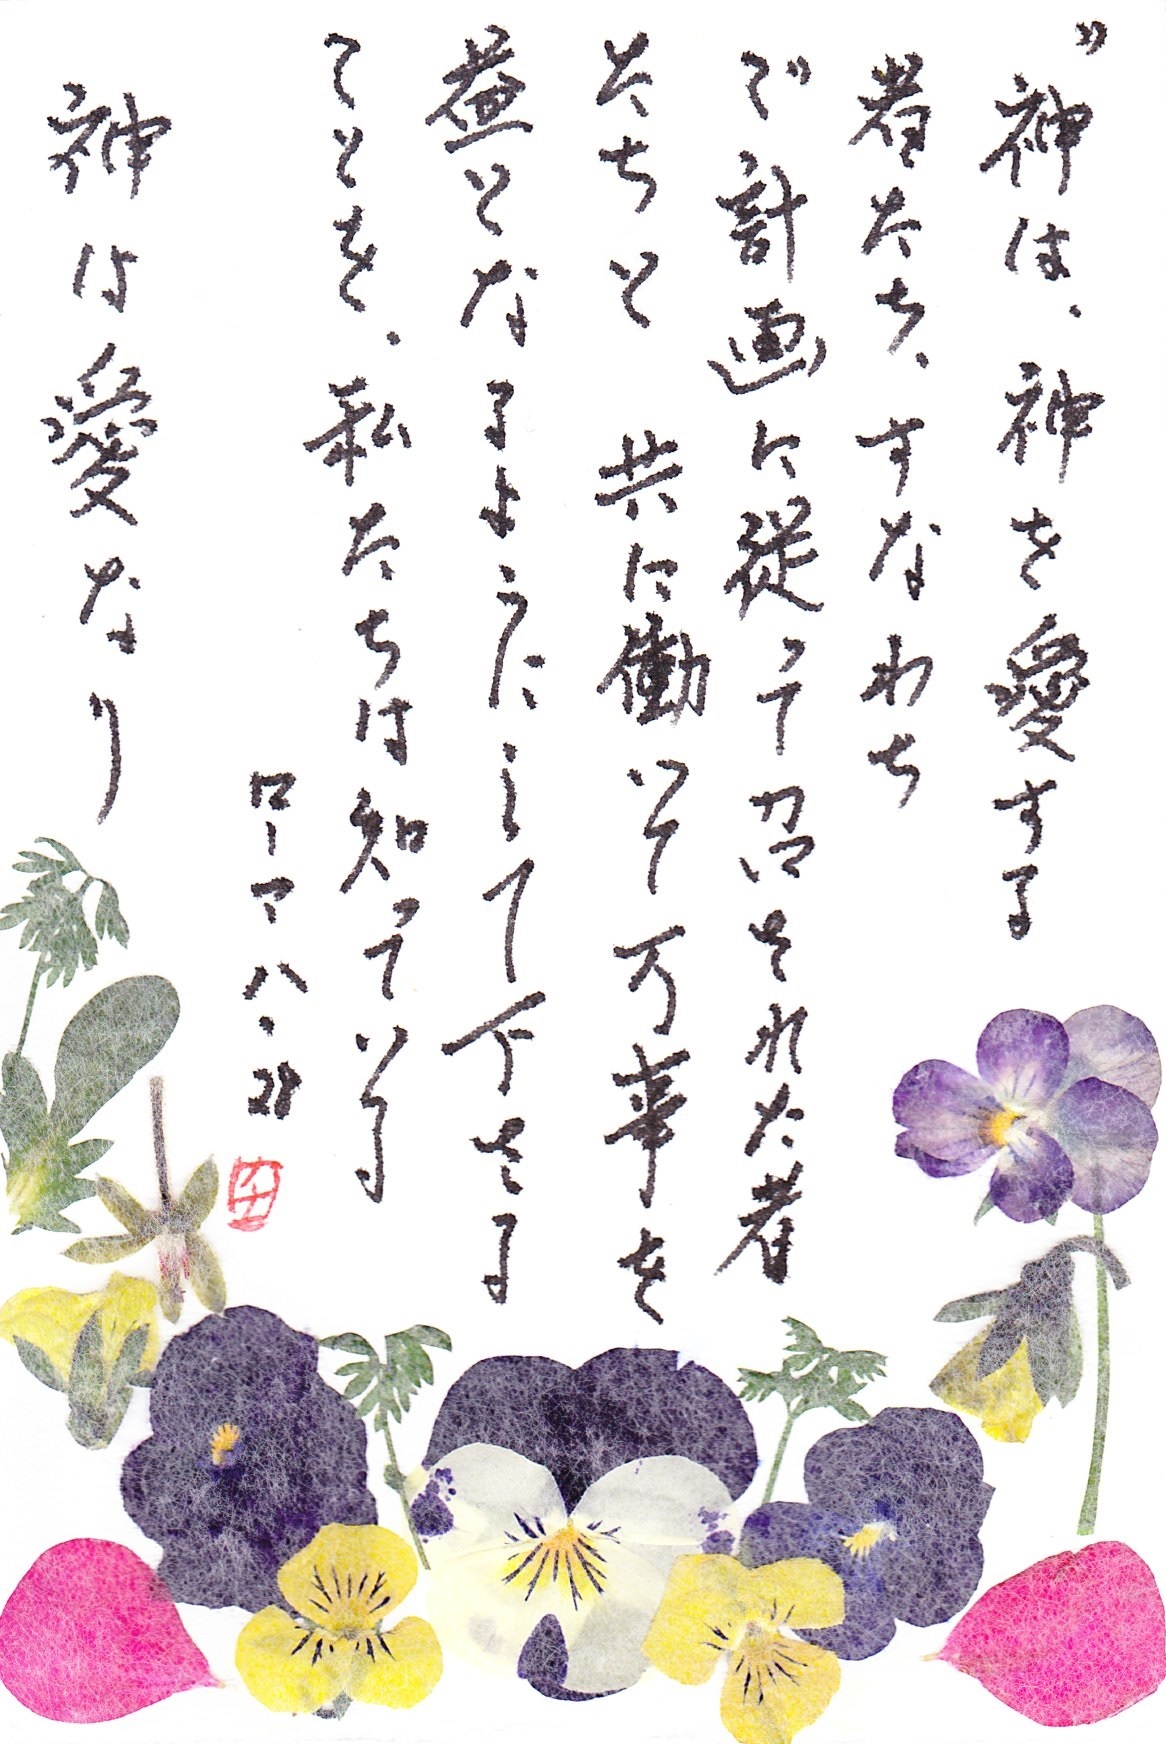 〃神は、神を愛する
者たち、すなわち
ご計画に従って召された者
たちと 共に働いて万事を
益となるようにして下さる
ことを、私たちは知っている
ローマ八・28
神は愛なり